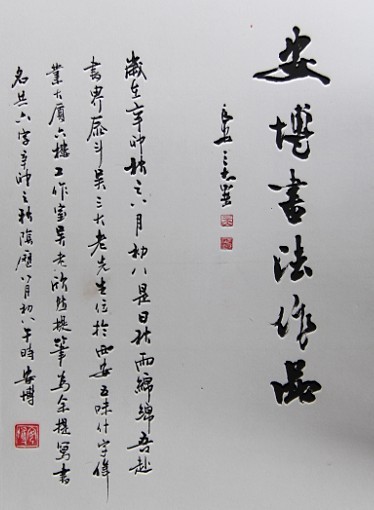 安博書法作品
長安三大署
歲在辛卯秋之八月初八是日秋雨綿綿吾赴
書界泰斗吴三大老先生位於西安五味什字偉
業大厦六樓工作室吴老欣然提筆為余提寫書
名共六字辛卯之秋陰曆八月初八午時安博